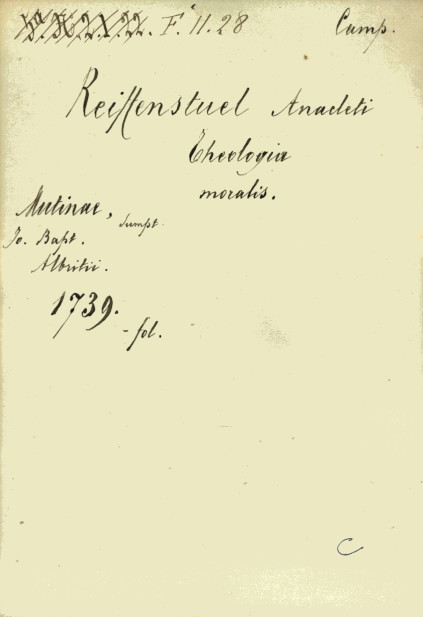 F. 11. 28 Camp.
Reiffenstuel Anacleti
Theologia
moralis.
Mutinae, sumpt.
Jo. Bapt.
Albritii.
1739.
- fol.
C